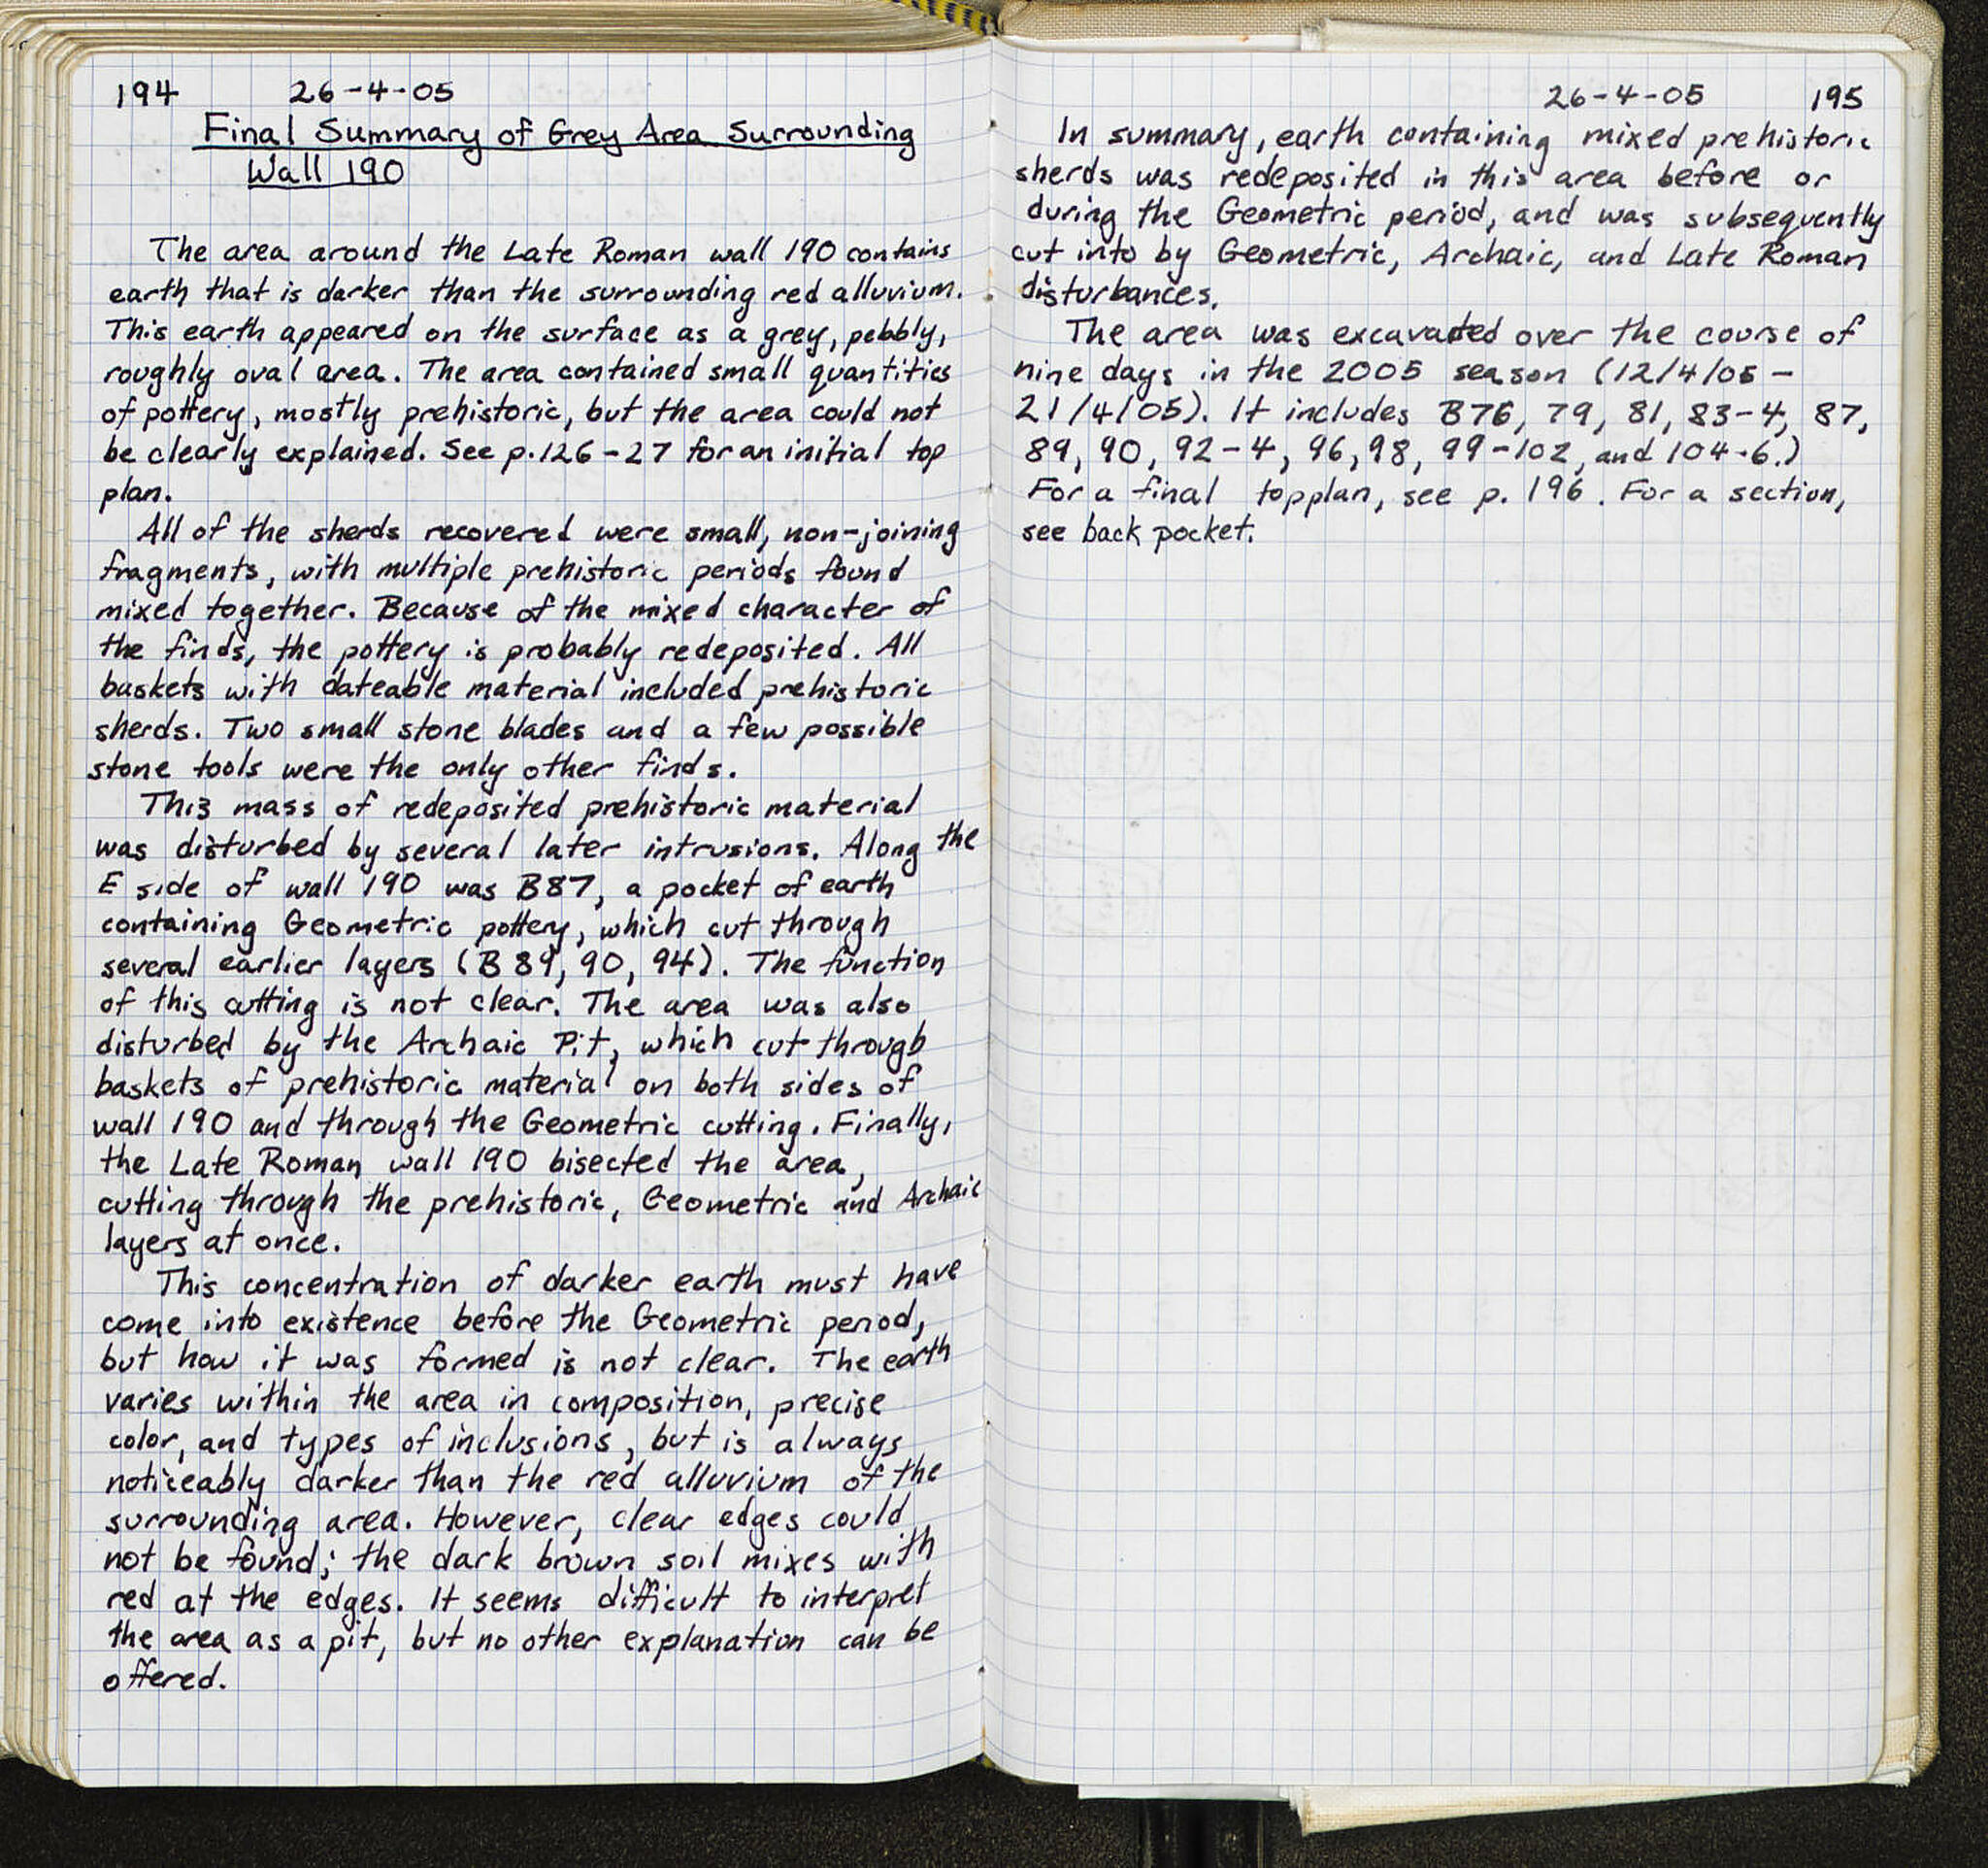 194 26-4-05
Final Summary of Grey Area Surrounding
Wall 190
The area around the Late Roman wall 190 contains
earth that is darker than the surrounding red alluvium.
This earth appeared on the surface as a grey, pebbly,
roughly oval area. The area contained small quantities
of pottery, mostly prehistoric, but the area could not
be clearly explained. See p.126-27 for an initial top
plan.
All of the sherds recovered were small, non-joining
fragments, with multiple prehistoric periods found
mixed together. Because of the mixed character of
the finds, the pottery is probably redeposited. All
baskets with dateable material included prehistoric
sherds. Two small stone blades and a few possible
stone tools were the only other finds.
This mass of redeposited prehistoric material
was disturbed by several later intrusions. Along the
E side of wall 190 was B87, a pocket of earth
containing Geometric pottery, which cut through
several earlier layers (B89, 90, 94). The function
of this cutting is not clear. The area was also
disturbed by the Archaic Pit, which cut through
baskets of prehistoric material on both sides of
wall 190 and through the Geometric cutting. Finally,
the Late Roman wall 190 bisected the area,
cutting through the prehistoric, Geometric and Archaic
layers at once.
This concentration of darker earth must have
come into existence before the Geometric period,
but how it was formed is not clear. The earth
varies within the area in composition, precise
color, and types of inclusions, but is always
noticeably darker than the red alluvium of the
surrounding area. However, clear edges could
not be found; the dark brown soil mixes with
red at the edges. It seems difficult to interpret
the area as a pit, but no other explanation can be
offered.
26-4-05 195
In summary, earth containing mixed prehistoric
sherds was redeposited in this area before or
during the Geometric period, and was subsequently
cut into by Geometric, Archaic, and Late Roman
disturbances.
The area was excavated over the course of
nine days in the 2005 season (12/4/05 -
21/4/05). It includes B76, 79, 81, 83-4, 87,
89, 90, 92-4, 96, 98, 99-102, and 104-6.)
For a final topplan, see p. 196. For a section,
see back pocket.